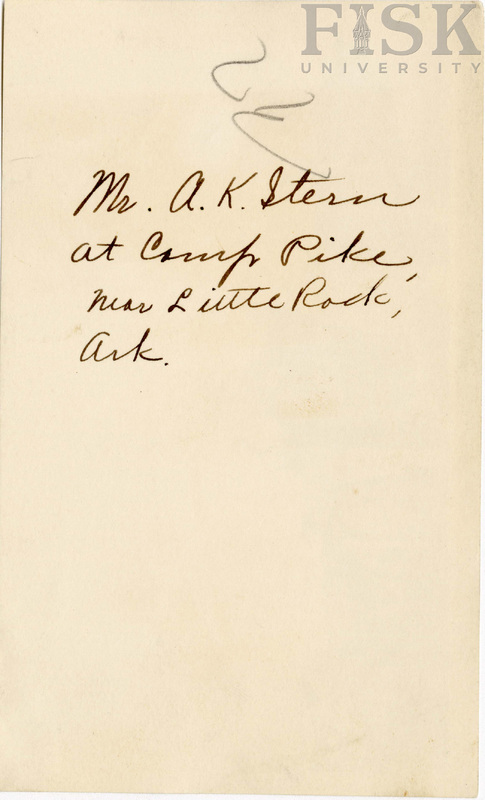 FISK
UNIVERSITY
Mr. A. K. Stern
at Camp Pike,
near Little Rock,
Ark.